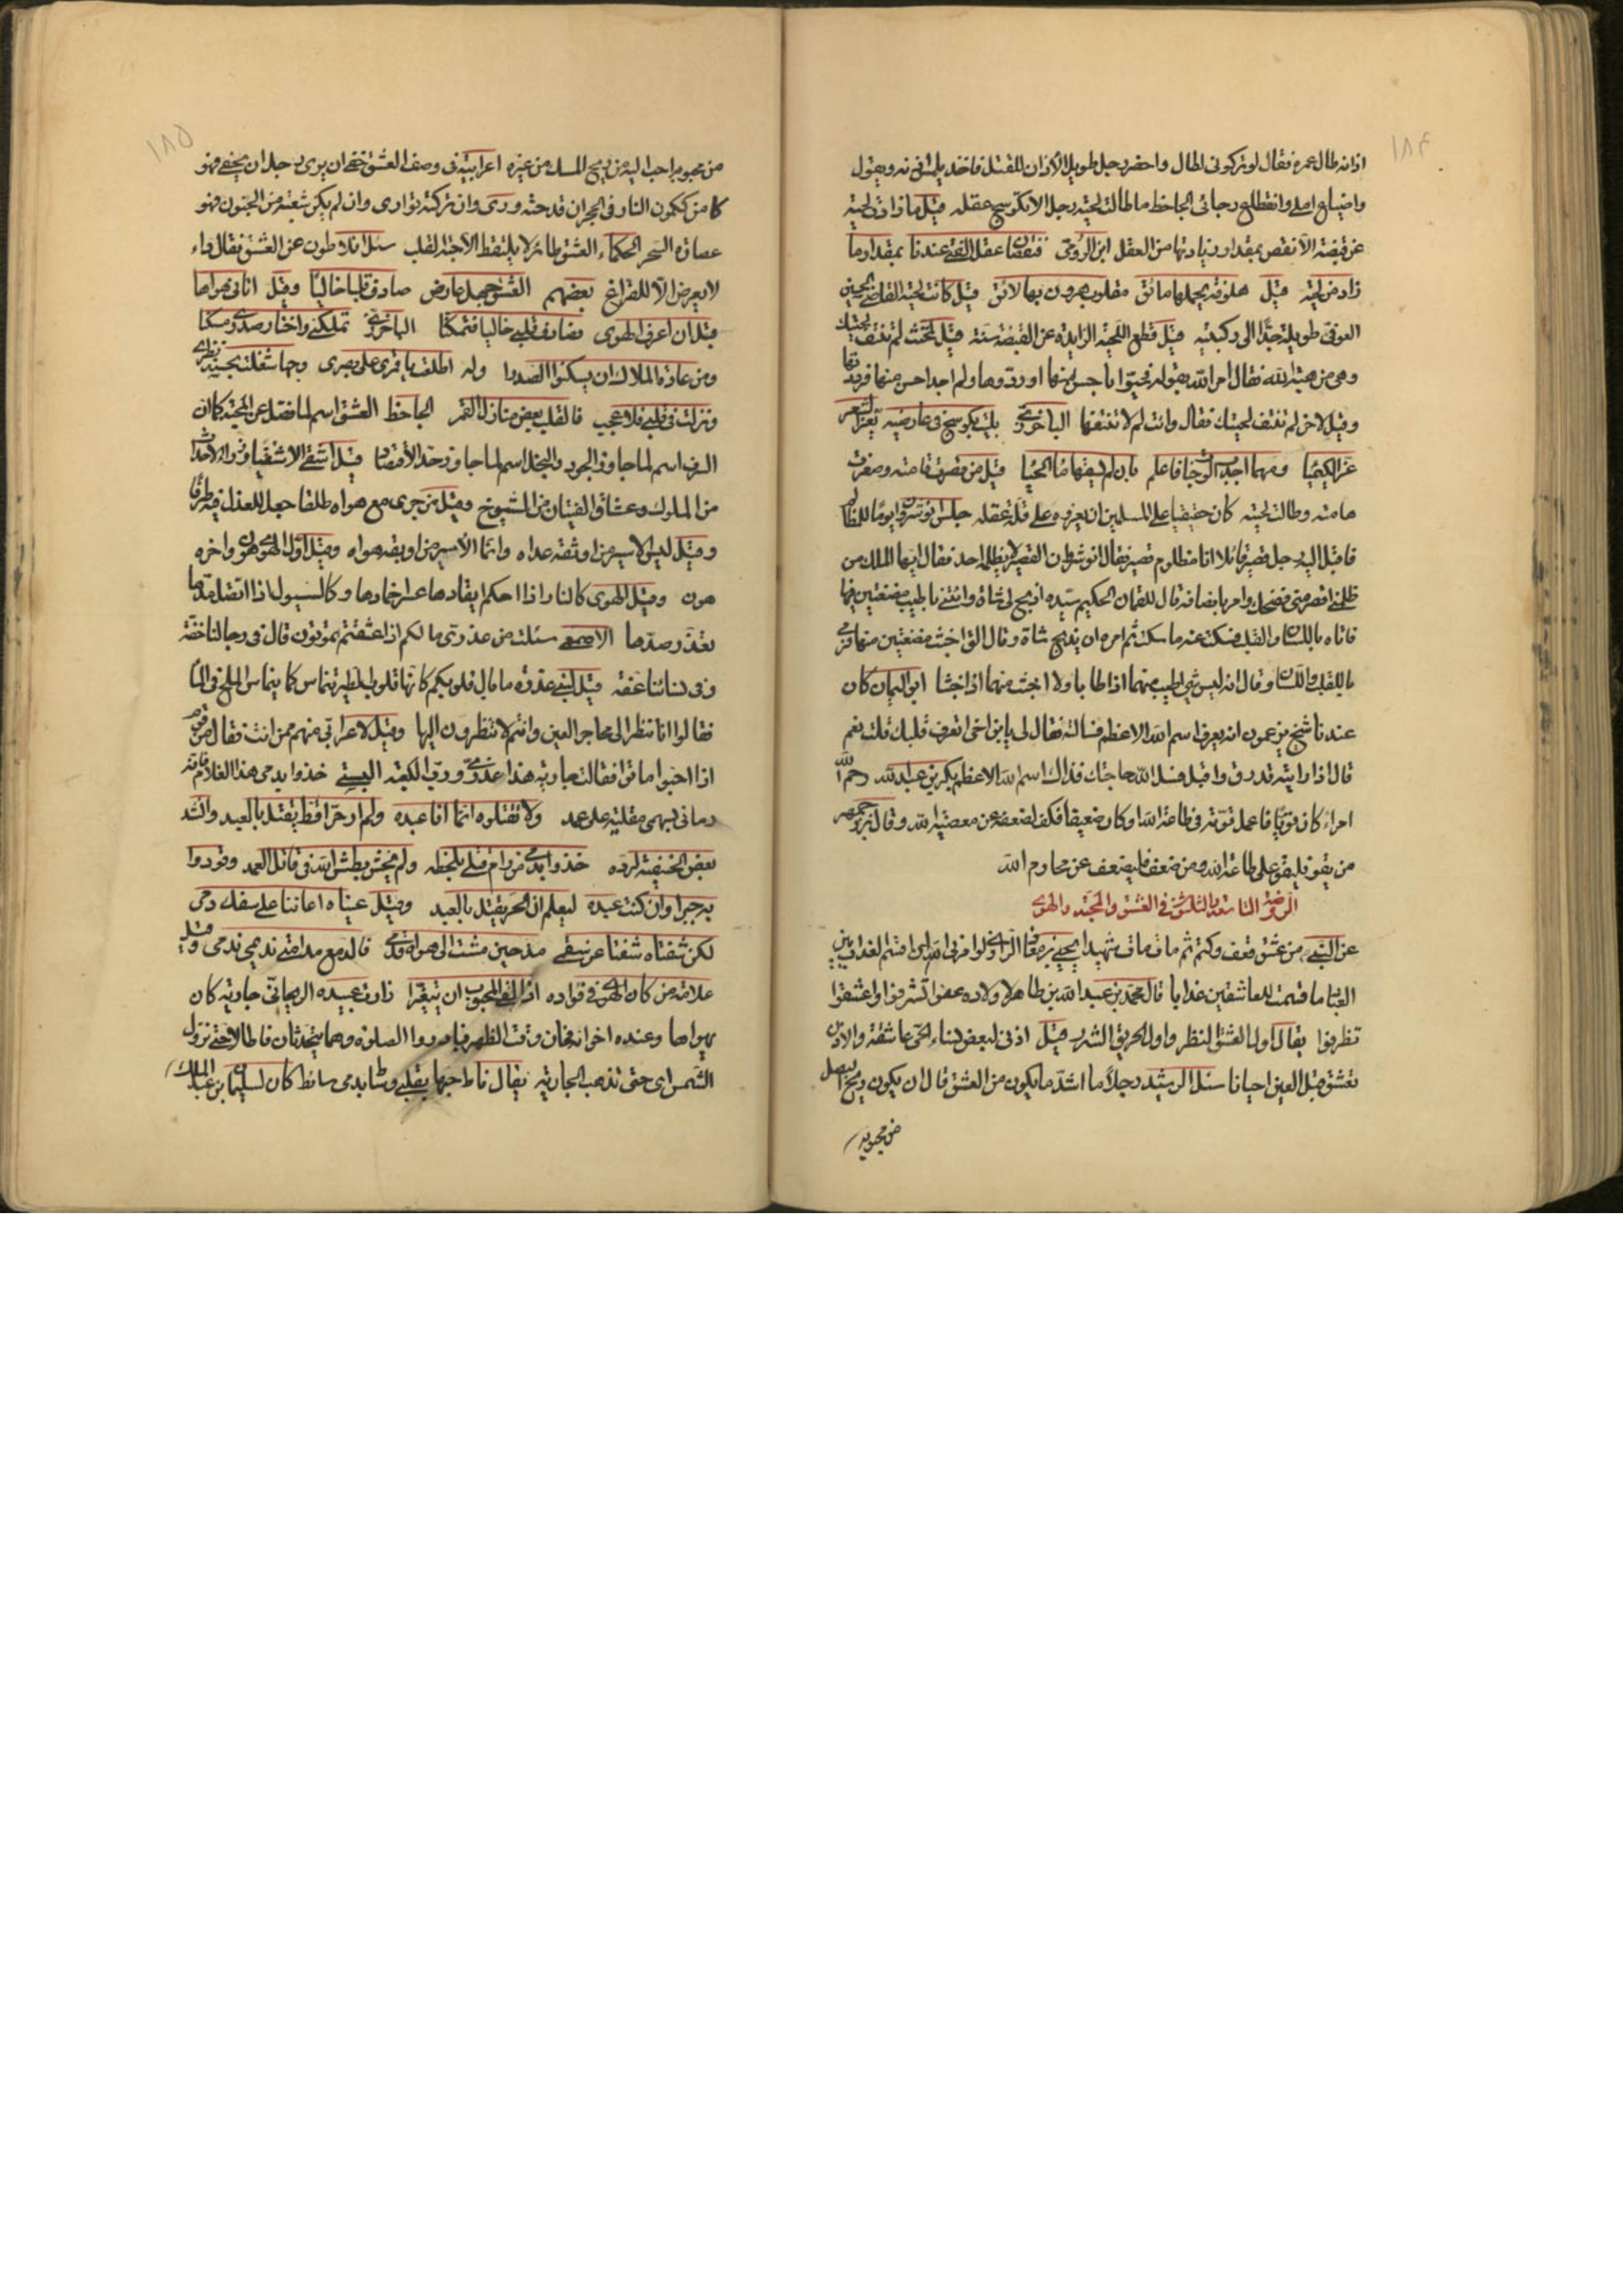 ١٨٤
اذانه طال عمره فقال لو تركوني لطال واحضر رجل طويل الاذان للقتل فاخذ يلمس اذنه ويقول
واضياع املي وانقطاع رجائي الجاحظ ما طالت لحية رجل الا تكوسج عقله قيل ما زادت لحية
عن قبضة الا نقص بمقدار زيادتها من العقل ابن الرومي فنقصان عقل الفتى عندنا بمقدار ما
زاد من لحيته قيل هلوفة يحملها مائق مقلوب هرون بها لائق قيل كانت لحية القاضي يحيى بن
العوفي طويلة جدا الى ركبتيه قيل قطع اللحية الزايدة عن القبضة سنة قيل لمخنث لم تنتف لحيتك
وهي من هبة الله فقال امر الله بقوله فحيوا باحسن منها او ردوها ولم اجد احسن منها فرددتها
وقيل لاخر لم تنتف لحيتك فقال وانت لم لا تنتفها الباخرزي بليت بكوسج في عارضيه تعز الشعر
عز الكيميا ومهما اجدب الوجنات فاعلم بان لم يسقها ماء الحيا قيل من قصرت قامته وصغرت
هامته وطالت لحيته كان حقيقا على المسلمين ان يعزوه على قلة عقله جلس نوشروان يوما للمظالم
فاقبل اليه رجل قصير قائلا انا مظلوم قصير فقال انوشروان القصير لا يظلمه احد فقال ايها الملك من
ظلمني اقصر مني فضحك وامر بانصافه قال للقمان الحكيم سيده اذبح لي شاة وائتني باطيب مضغتين منها
فاتاه باللسان والقلب فسكت عنه ما سكت ثم امره ان يذبح شاة وقال الق اخبث مضغتين منها فرمى
باللقلب واللسان وقال انه ليس شيء اطيب منهما اذا طابا ولا اخبث منهما اذا خبثا ابو اليمان كان
عندنا شيخ يزعمون انه يعرف اسم الله الاعظم فسالته فقال لي يا ابن اخي اتعرف قلبك قلت نعم
قال اذا رايته قد رق واقبل فسل الله حاجتك فذاك اسم الله الاعظم بكر بن عبد الله رحم الله
امراء كان قويا فاعمل قوته في طاعة الله او كان ضعيفا فكف لضعفه عن معصية الله وقال بزرجمهر
من يقو فليقو على طاعة الله ومن ضعف فليضعف عن محارم الله
الروضة التاسعة والثلثون في العشق والمحبة والهوى
عن النبي من عشق فعف وكتم ثم مات مات شهيدا يحيى بن معاذ الرازي لو امرني الله ان اقسم العذاب بين
العباد ما قسمت للعاشقين عذابا قال محمد بن عبد الله بن طاهر لاولاده عفوا تشرفوا واعشقوا
تظرفوا يقال اول العشق النظر واول الحريق الشرر قيل اذني لبعض نساء الحي عاشقة والاذن
تعشق قبل العين احيانا سئل الرشيد رجلا ما اشد ما يكون من العشق قال ان يكون ريح البصل
من محبوبه
١٨٥
من محبوبه احب اليه من ريح المسك من غيره اعرابية في وصف العشق خفي ان يرى وجل ان يخفى فهو
كامن ككمون النار في الحجر ان قدحته ورى وان تركته توارى وان لم يكن شعبة من الجنون فهو
عصارة السحر الحكماء العشق طائر لا يلتقط الا حبة القلب سئل افلاطون عن العشق فقال داء
لا يعرض الا للفراغ بعضهم العشق جهل عارض صادف قلبا خاليا وقيل اتاني هواها
قبل ان اعرف الهوى فصادف قلبي خاليا فتمكنا الباخرزي تملكني واختار صدري مسكنا
ومن عادة الملاك ان يسكنوا الصدرا وله اطلعت يا قمري على بصري وجها شغلت بحسنه نظري
ونزلت في قلبي فلا عجب فالقلب بعض منازل القمر الجاحظ العشق اسم لما فضل عن المحبة كما ان
السرف اسم لما جاوز الجود والبخل اسم لما جاوز حد الاقتصاد قيل اشقى الاشقياء ذو الاحداث
من الملوك وعشاق الفتيان من الشيوخ وقيل من جرى مع هواه طلقا جعل للعذل فيه طرقا
وقيل ليس الاسير من اوثقه عداه وانما الاسير من اوبقه هواه وقيل اول الهوى هوى واخره
هون وقيل الهوى كالنار اذا احكم ايقادها عسر اخمادها وكالسيول اذا اتصل مدها
تعذر صدها الاصمعي سئلت من عذري ما لكم اذا عشقتم تموتون قال في رجالنا خفة
وفي نسائنا عفة قيل لبني عذرة ما بال قلوبكم كانها قلوب الطير تنماث كما ينماث الملح في الماء
فقالوا انا ننظر الى محاجر العين وانتم لا تنظرون اليها وقيل لاعرابي منهم ممن انت فقال من قوم
اذا احبوا ماتوا فقالت جارية هذا عذري ورب الكعبة البستي خذوا بدمي هذا الغلام فانه
رماني بسهمي مقلتيه على عمد ولا تقتلوه انما انا عبده ولم ار حرا قط يقتل بالعبد وانشد
بعض الحنفية لرده خذوا بدمي من رام قتلي بلحظه ولم يخش بطش الله في قاتل العمد وقودوا
به جبرا وان كنت عبده ليعلم ان الحر يقتل بالعبد وقيل عيناه اعانتا على سفك دمي
لكن شفتاه شفتا عن سقمي مذ حين مشت الى هواه قدمي فالدمع مدامتي نديمي ندمي وقيل
علامة من كان الهوى في فؤاده اذا لقي المحبوب ان يتغيرا زارت عبيدة الريحاني جارية كان
يهواها وعنده اخوانه فحان وقت الظهر فبادروا الصلوة وهما يتحدثان فاطالا حتى نزول
الشمس اي حتى تذهب الجارية يقال فاطا حبها بقلبي وشاب دمي سائط كان لسليمان بن عبد الملك